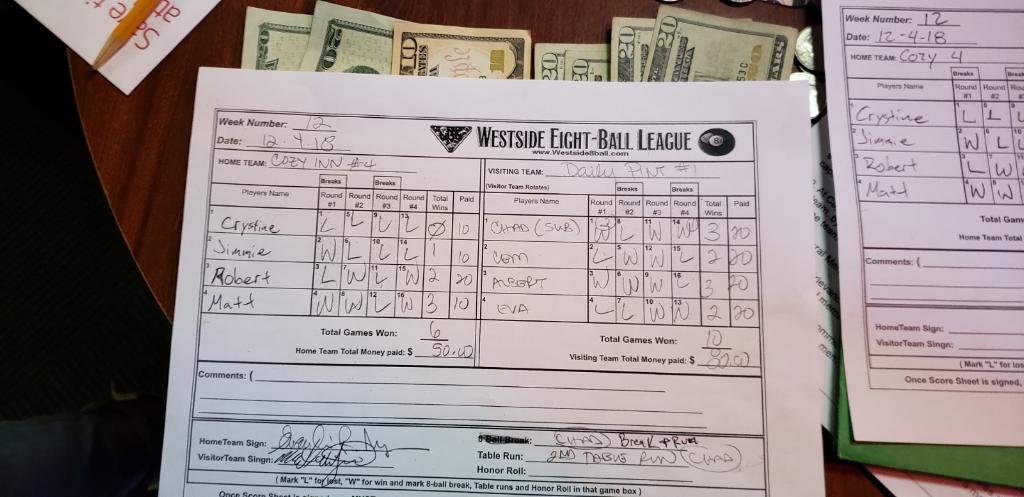 Week Number: 12
Date: 12.4.18
WESTSIDE EIGHT-BALL LEAGUE
www.Westside8ball.com
HOME TEAM: COZY INN #4
VISITING TEAM: Daily PINT #1
(Visitor Team Rotates)
Breaks Breaks Breaks Breaks
Players Name Round #1 Round #2 Round #3 Round #4 Total Wins Paid
Players Name Round #1 Round #2 Round #3 Round #4 Total Wins Paid
1 Crystine 1 L 5 L 9 L 13 L Ø 10
1 CHAD (SUB) 1 W 8 L 11 W 14 W 3 20
2 Jimmie 2 W 6 L 10 L 14 L 1 10
2 L 5 W 12 W 15 L 2 20
3 Robert 3 L 7 W 11 L 15 W 2 20
3 ALBERT 3 W 6 W 9 W 16 L 3 20
4 Matt 4 W 8 W 12 L 16 W 3 10
4 EVA 4 L 7 L 10 W 13 W 2 20
Total Games Won: 6
Total Games Won: 10
Home Team Total Money paid: $ 50.00
Visiting Team Total Money paid: $ 80.00
Comments: (
HomeTeam Sign:
8 Ball Break: (CHAD) Break & Run
VisitorTeam Singn:
Table Run: 2ND TABLE RUN (CHAD)
Honor Roll:
(Mark "L" for lost, "W" for win and mark 8-ball break, Table runs and Honor Roll in that game box)
Week Number: 12
Date: 12-4-18
HOME TEAM: COZY 4
Breaks
Players Name Round #1 Round #2
1 Crystine L L
2 Jimmie W L
3 Robert L W
4 Matt W W
Total Gam
Home Team Total
Comments: (
HomeTeam Sign:
VisitorTeam Singn:
(Mark "L" for los
Once Score Sheet is signed,
10
20
20
20
20